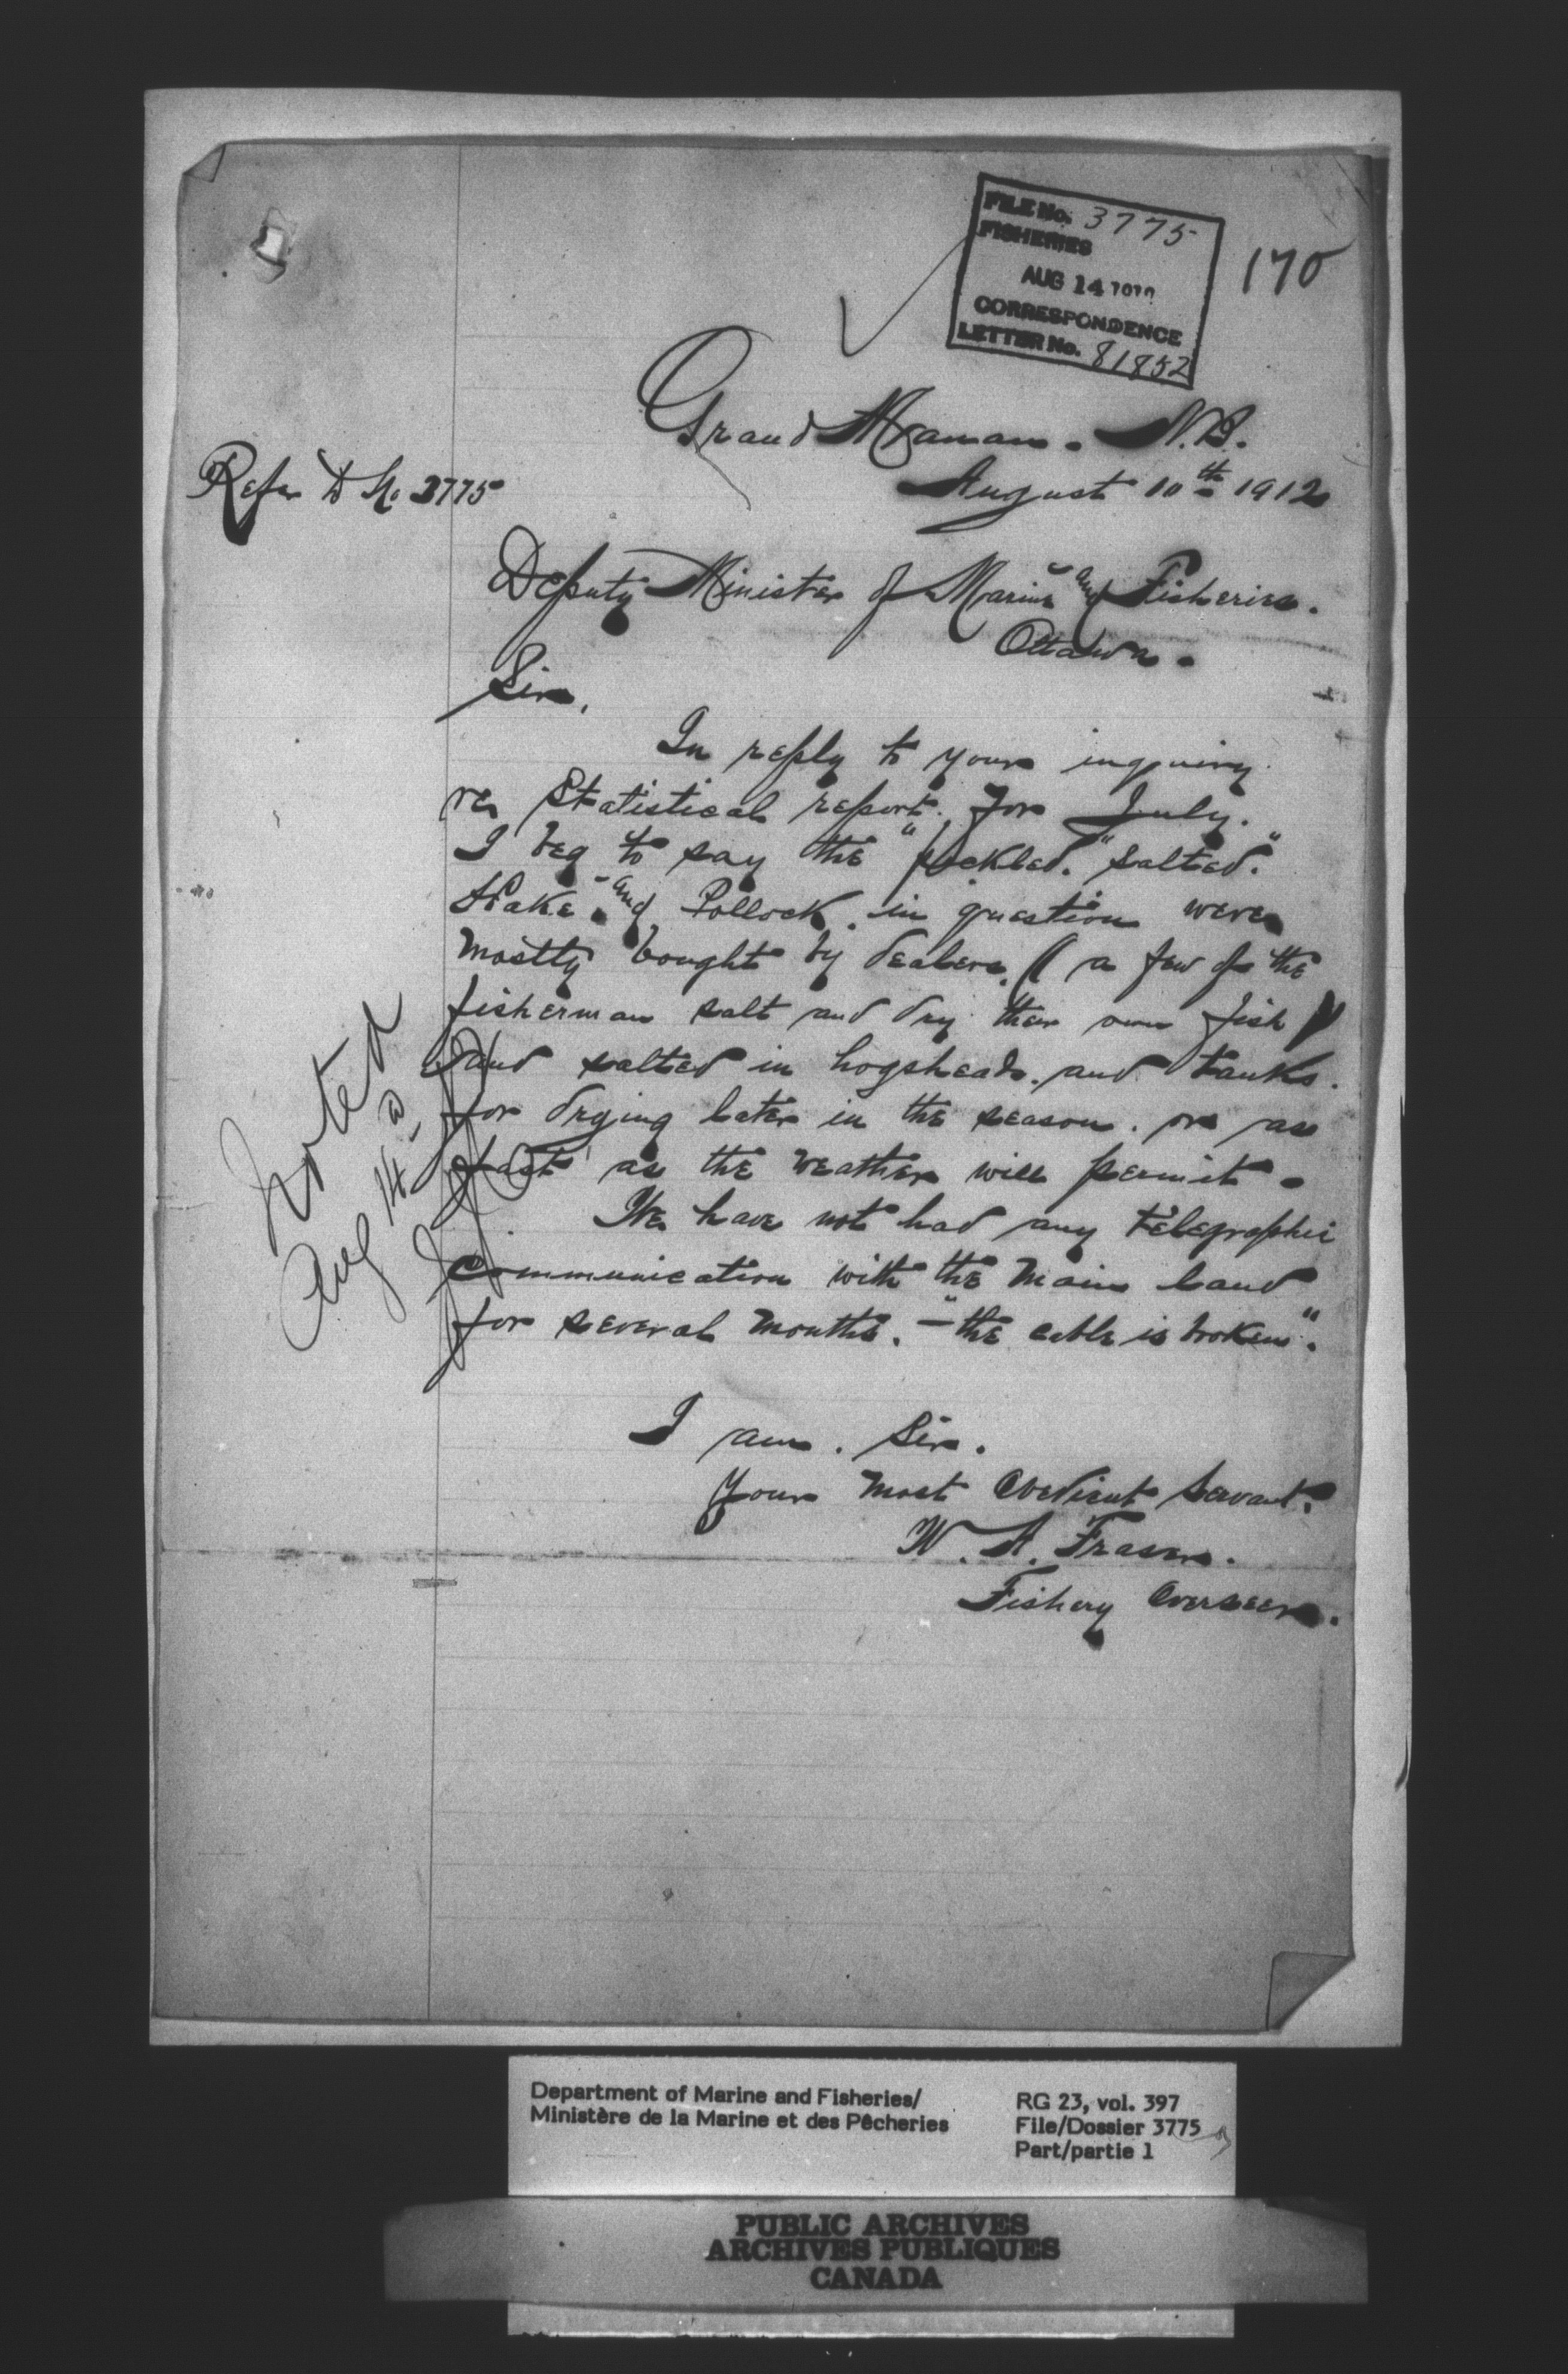 FILE No. 3775
FISHERIES
AUG 14
CORRESPONDENCE
LETTER No. 81852
170
Grand Manan. N.B.
August 10th 1912
Refer to No 3775
Deputy Minister of Marine and Fisheries.
Ottawa.
Sir,
In reply to your inquiry
re, Statistical report. for July.
I beg to say the "pickled." "salted."
Hake. and Pollock. in question were
mostly bought by dealers. ( a few of the
fisherman salt and dry their own fish )
and salted in hogsheads. and tanks.
for drying later in the season. or as
fast as the weather will permit.
We have not had any telegraphic
communication with the main land
for several months. - "the cable is broken".
Noted
Aug 14
I am. Sir.
Your most Obedient Servant.
W. A. Fraser.
Fishery Overseer.
Department of Marine and Fisheries/
Ministère de la Marine et des Pêcheries
RG 23, vol. 397
File/Dossier 3775
Part/partie 1
PUBLIC ARCHIVES
ARCHIVES PUBLIQUES
CANADA